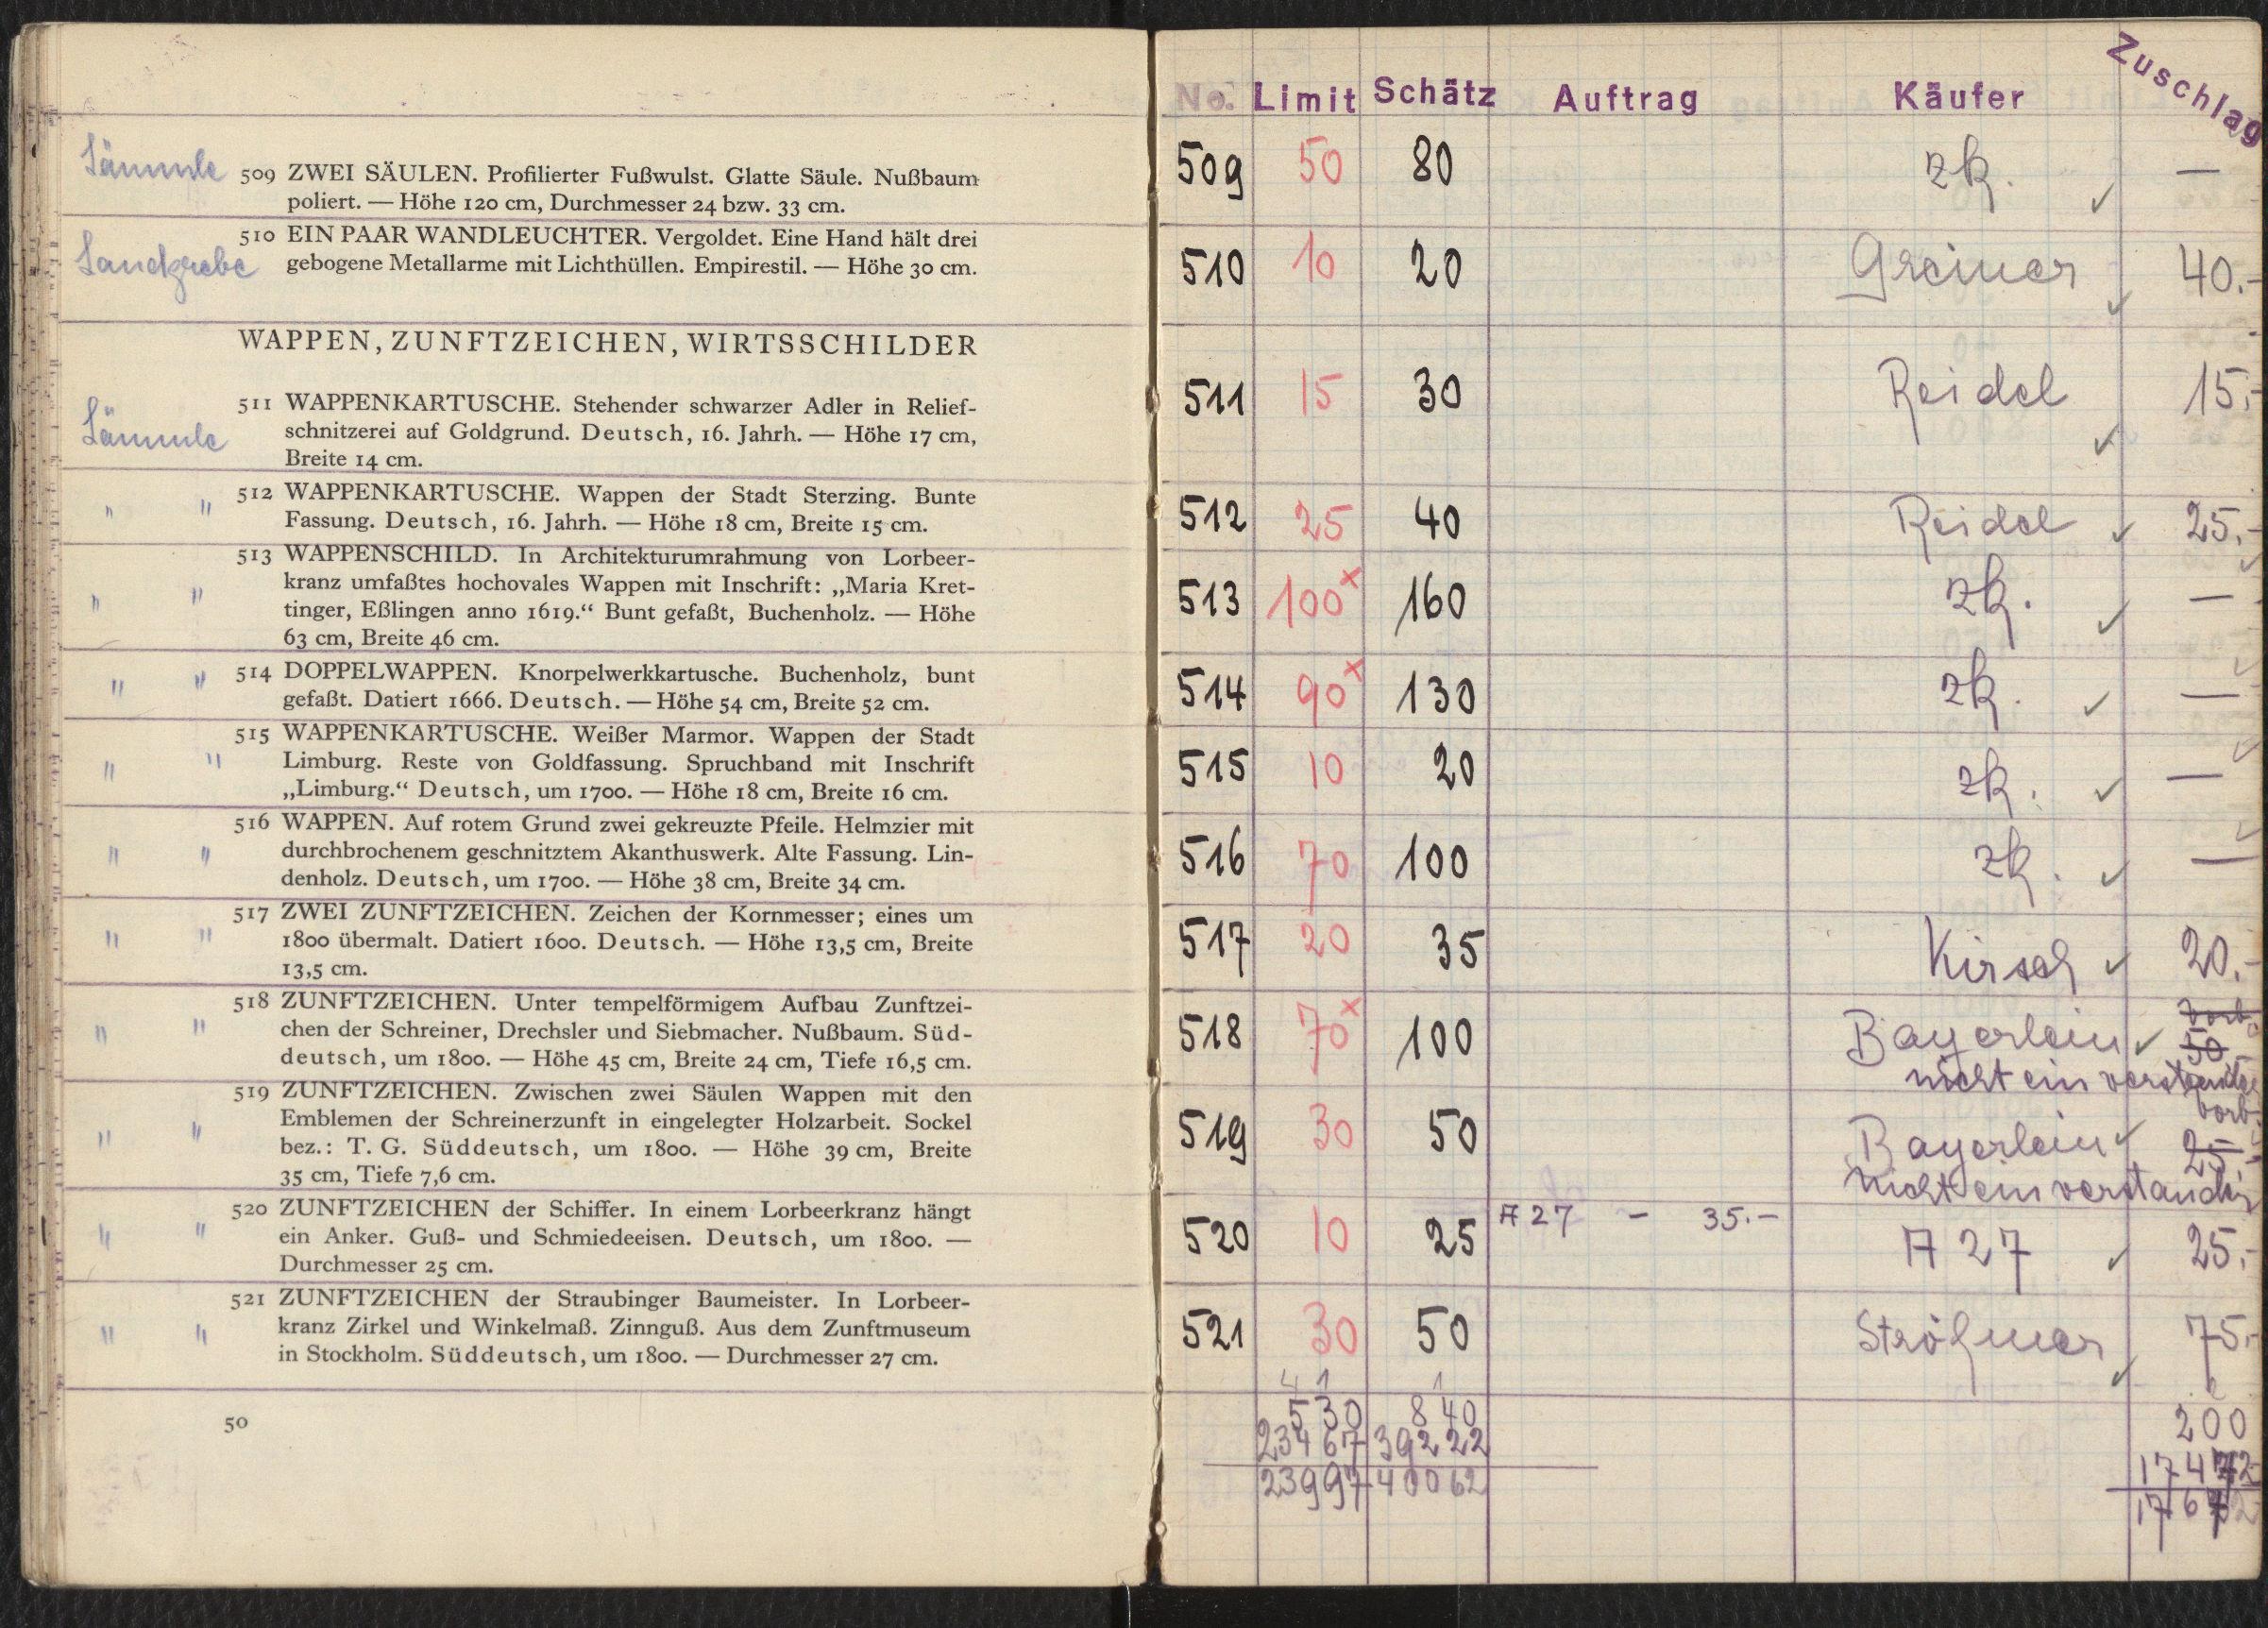 Lämmle 509 ZWEI SÄULEN. Profilierter Fußwulst. Glatte Säule. Nußbaum
poliert. — Höhe 120 cm, Durchmesser 24 bzw. 33 cm.
510 EIN PAAR WANDLEUCHTER. Vergoldet. Eine Hand hält drei
Landgrebe gebogene Metallarme mit Lichthüllen. Empirestil. — Höhe 30 cm.
WAPPEN, ZUNFTZEICHEN, WIRTSSCHILDER
511 WAPPENKARTUSCHE. Stehender schwarzer Adler in Relief-
Lämmle schnitzerei auf Goldgrund. Deutsch, 16. Jahrh. — Höhe 17 cm,
Breite 14 cm.
" " 512 WAPPENKARTUSCHE. Wappen der Stadt Sterzing. Bunte
Fassung. Deutsch, 16. Jahrh. — Höhe 18 cm, Breite 15 cm.
513 WAPPENSCHILD. In Architekturumrahmung von Lorbeer-
kranz umfaßtes hochovales Wappen mit Inschrift: „Maria Kret-
" " tinger, Eßlingen anno 1619.“ Bunt gefaßt, Buchenholz. — Höhe
63 cm, Breite 46 cm.
" " 514 DOPPELWAPPEN. Knorpelwerkkartusche. Buchenholz, bunt
gefaßt. Datiert 1666. Deutsch. — Höhe 54 cm, Breite 52 cm.
515 WAPPENKARTUSCHE. Weißer Marmor. Wappen der Stadt
" " Limburg. Reste von Goldfassung. Spruchband mit Inschrift
„Limburg.“ Deutsch, um 1700. — Höhe 18 cm, Breite 16 cm.
516 WAPPEN. Auf rotem Grund zwei gekreuzte Pfeile. Helmzier mit
" " durchbrochenem geschnitztem Akanthuswerk. Alte Fassung. Lin-
denholz. Deutsch, um 1700. — Höhe 38 cm, Breite 34 cm.
517 ZWEI ZUNFTZEICHEN. Zeichen der Kornmesser; eines um
" " 1800 übermalt. Datiert 1600. Deutsch. — Höhe 13,5 cm, Breite
13,5 cm.
518 ZUNFTZEICHEN. Unter tempelförmigem Aufbau Zunftzei-
" " chen der Schreiner, Drechsler und Siebmacher. Nußbaum. Süd-
deutsch, um 1800. — Höhe 45 cm, Breite 24 cm, Tiefe 16,5 cm.
519 ZUNFTZEICHEN. Zwischen zwei Säulen Wappen mit den
Emblemen der Schreinerzunft in eingelegter Holzarbeit. Sockel
" " bez.: T. G. Süddeutsch, um 1800. — Höhe 39 cm, Breite
35 cm, Tiefe 7,6 cm.
520 ZUNFTZEICHEN der Schiffer. In einem Lorbeerkranz hängt
" " ein Anker. Guß- und Schmiedeeisen. Deutsch, um 1800. —
Durchmesser 25 cm.
521 ZUNFTZEICHEN der Straubinger Baumeister. In Lorbeer-
" " kranz Zirkel und Winkelmaß. Zinnguß. Aus dem Zunftmuseum
in Stockholm. Süddeutsch, um 1800. — Durchmesser 27 cm.
50
No. Limit Schätz Auftrag Käufer Zuschlag
509 50 80 zk. ✓ —
510 10 20 Greiner ✓ 40.-
511 15 30 Reidel ✓ 15.-
512 25 40 Reidel ✓ 25.-
513 100x 160 zk. ✓ —
514 90x 130 zk. ✓ —
515 10 20 zk. ✓ —
516 70 100 zk. ✓ —
517 20 35 Kirsch ✓ 20.-
vorb.
518 70x 100 Bayerlein ✓ 50
nicht einverstanden
vorb.
519 30 50 Bayerlein ✓ 25.-
nicht einverstanden
520 10 25 A 27 - 35.- A 27 ✓ 25.-
521 30 50 Ströhmer ✓ 75.-
4 1 1 2
530 840 200
23467 39222
23997 40062